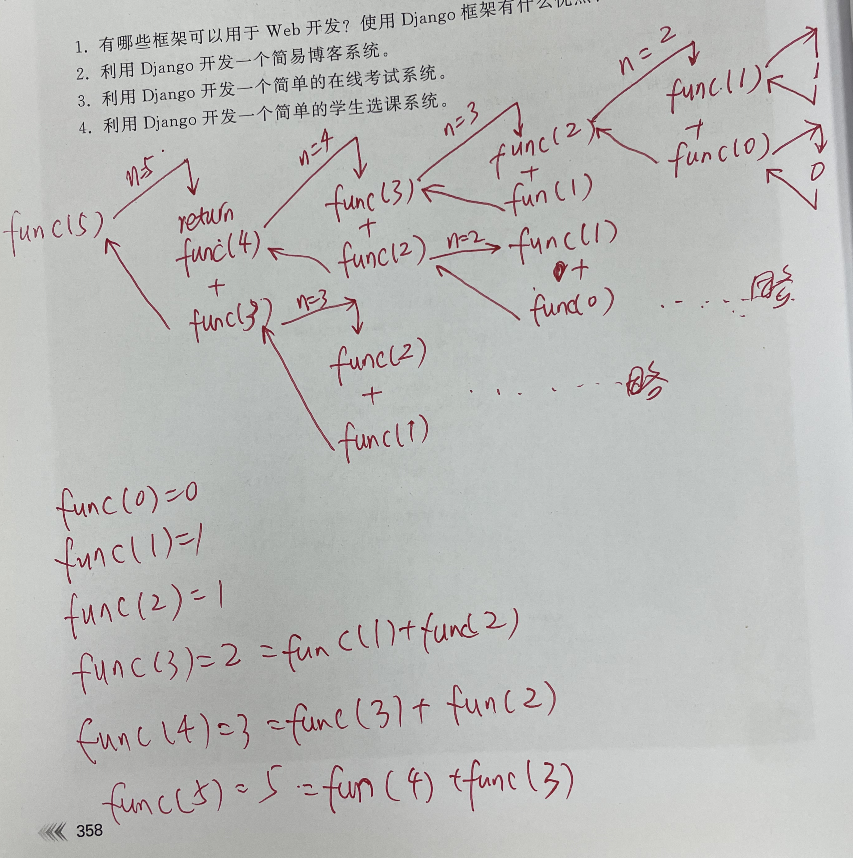 1. 有哪些框架可以用于 Web 开发？使用 Django 框架有什么优点？
2. 利用 Django 开发一个简易博客系统。
3. 利用 Django 开发一个简单的在线考试系统。
4. 利用 Django 开发一个简单的学生选课系统。
n=2
func(1) 1
+
func(0) 0
n=3
func(2)
+
fun(1)
n=4
func(3)
+
func(2) n=2 func(1)
+
func(0) ...... 略
n=5
func(5)
return
func(4)
+
func(3) n=3
func(2)
+ ...... 略
func(1)
func(0)=0
func(1)=1
func(2)=1
func(3)=2=func(1)+func(2)
func(4)=3=func(3)+func(2)
func(5)=5=fun(4)+func(3)
358